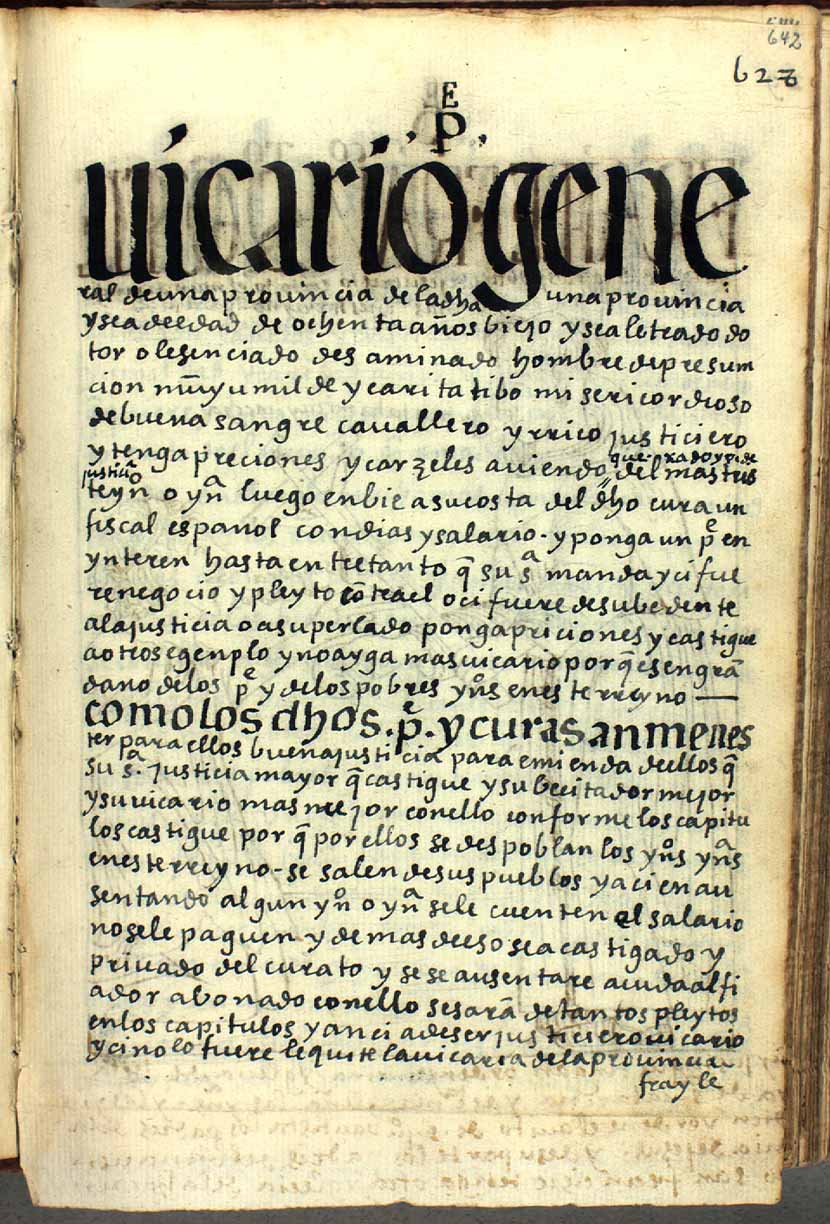 642
628
E
P
uicario gene
ral de una prouincia de la dha una prouincia
y sea de edad de ochenta años biejo y sea letrado do
tor o lesenciado desaminado hombre de presum
cion muy umilde y caritatibo misericordioso
de buena sangre cavallero y rrico justiciero
y tenga preciones y carzeles auiendo quexado y pide
justicia del mas tris
te yṇo o yṇa luego enbie a su costa del dho cura un
fiscal español con dias y salario - y ponga un pe en
ynteren hasta entretanto q̃ su sa manda y ci fue
re negocio y pleyto contra el o ci fuere desubedente
a la justicia o a su perlado ponga priciones y castigue
a otros egenplo y no ayga mas uicario porq̃ es en grã
daño de los pe y de los pobres yños en este rreyno —
como los dhos . pe . y curas an menes
ter para ellos buena justicia para emienda dellos q̃
su sa . justicia mayor q̃ castigue y su becitador mejor
y su uicario mas mejor con ello conforme los capitu
los castigue por q̃ por ellos se despoblan los yños yñas
en este rreyno - se salen de sus pueblos y aci en au
sentando algun yño o yña se le cuenten el salario
no se le paguen y demas deeso sea castigado y
priuado del curato y se se ausentare acuda al fi
ador abonado con ello sesarã de tantos pleytos
en los capitulos y anci a de ser justiciero uicario
y ci no lo fuere le quite la uicaria de la prouincia
frayle